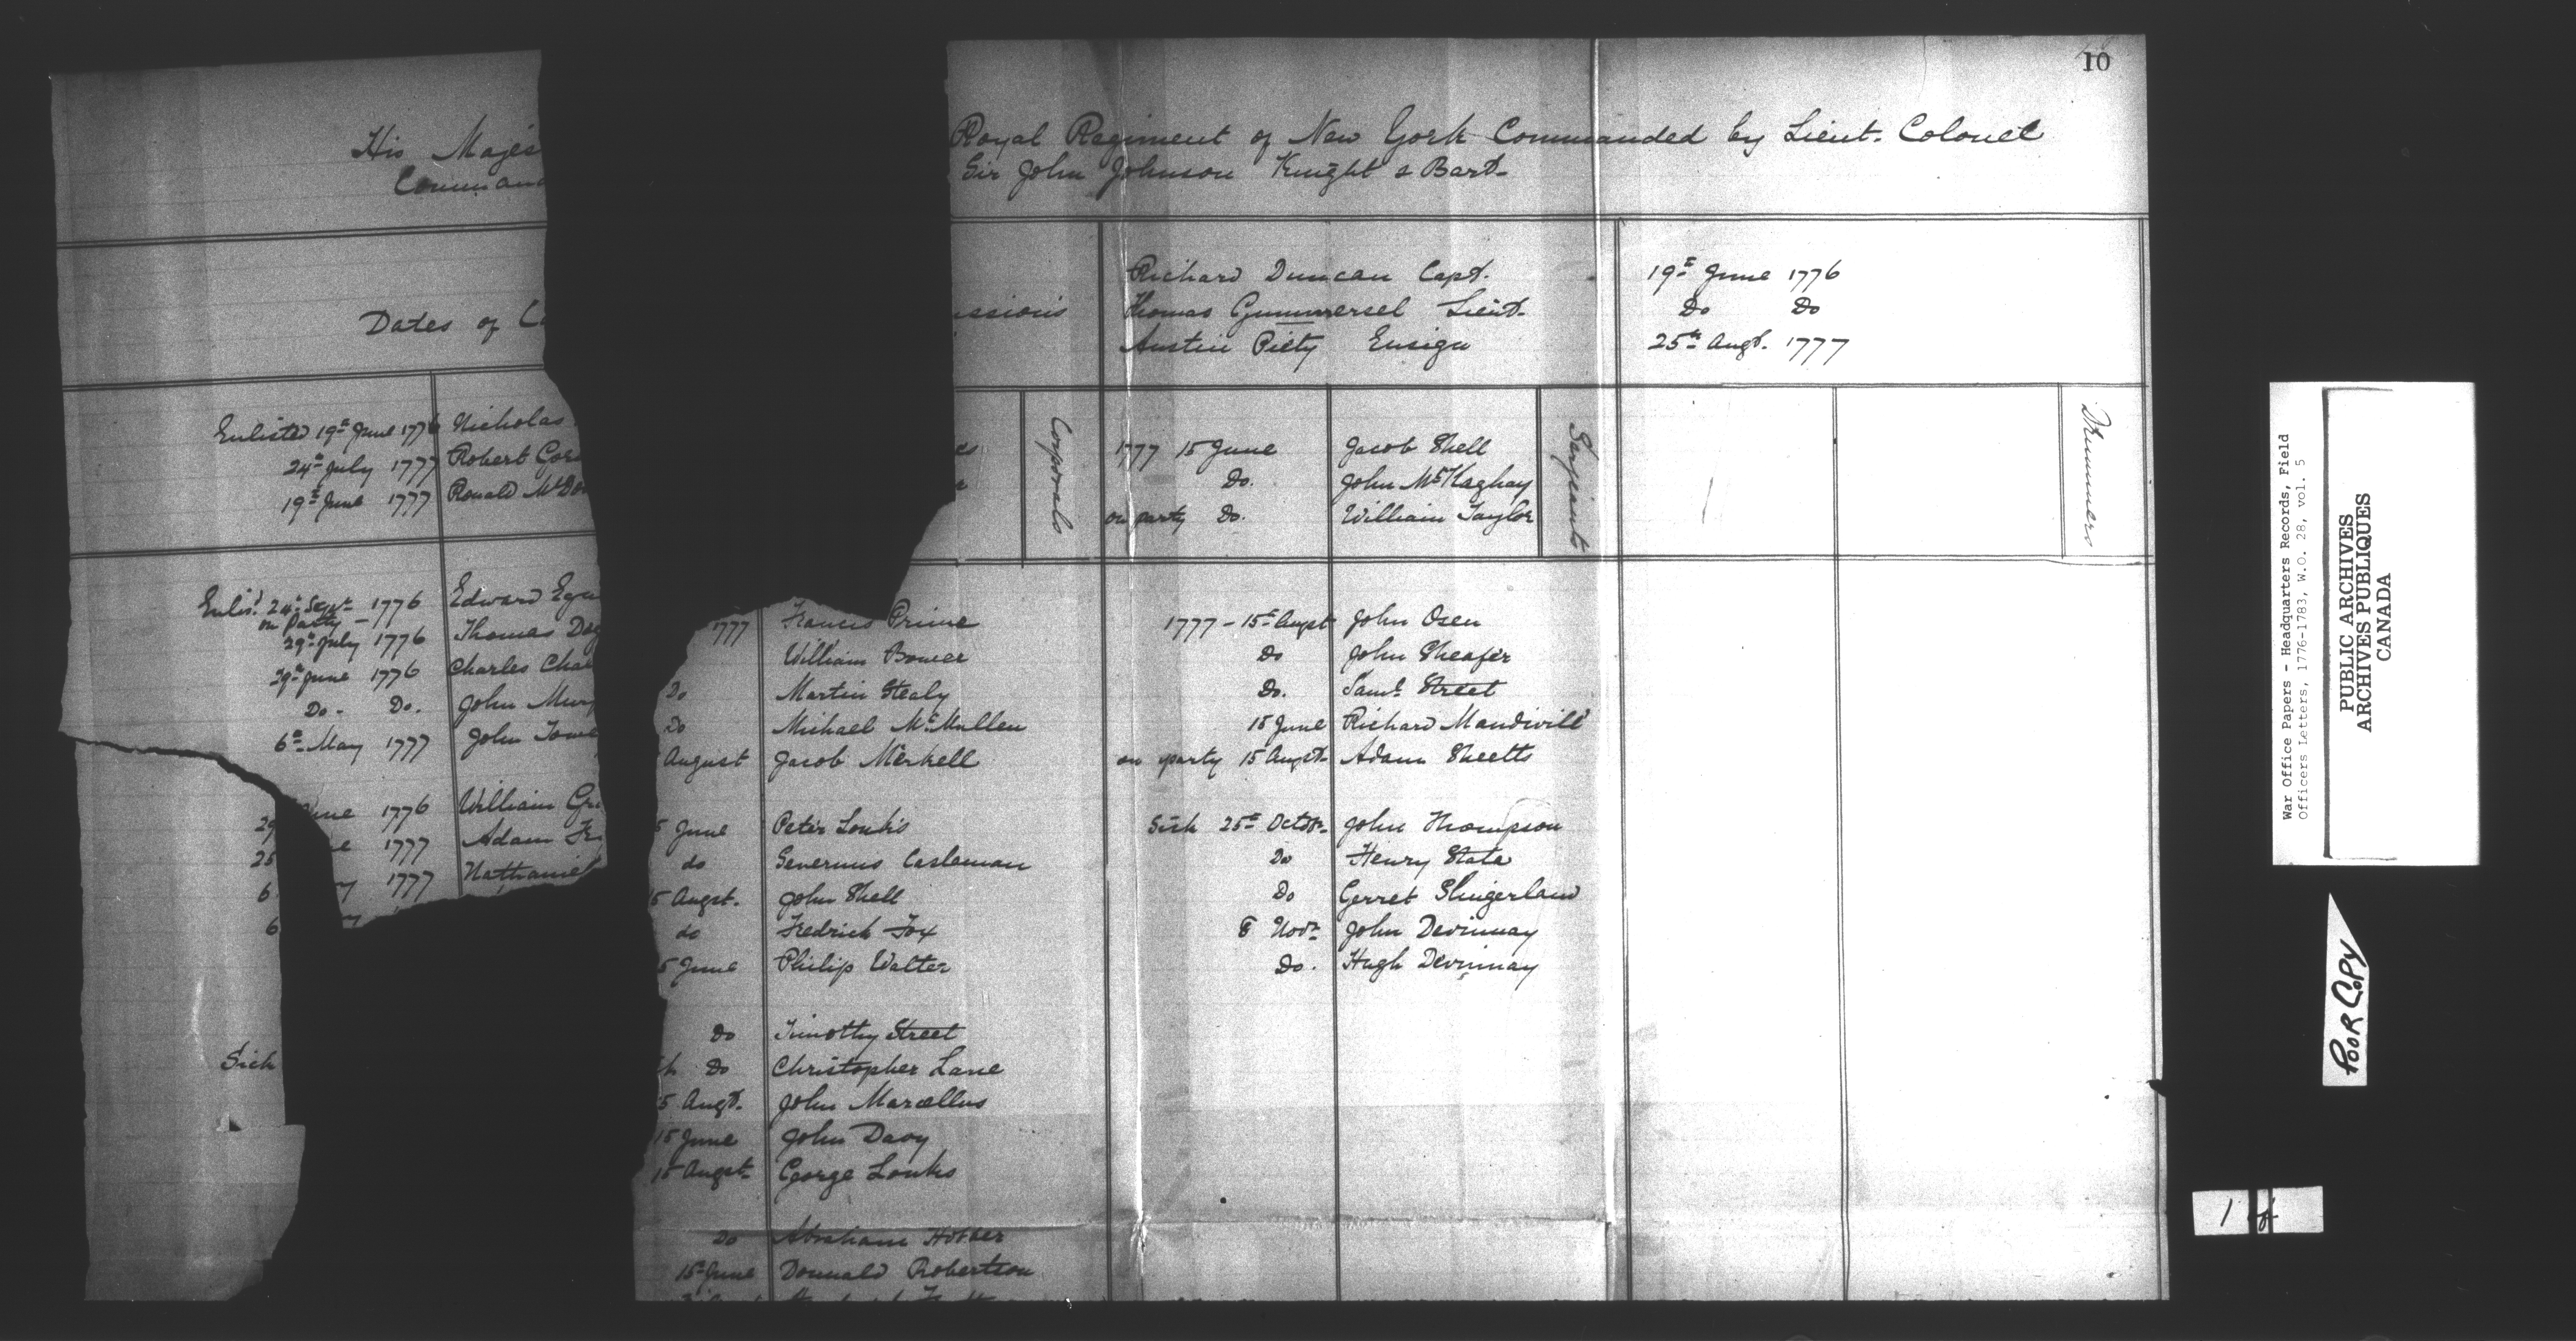 10
His Majes
Command
Royal Regiment of New York Commanded by Lieut. Colonel
Sir John Johnson Knight & Bart.
Dates of Co
ssions
Richard Duncan Capt. 19th June 1776
Thomas Gummersel Lieut. Do Do
Austin Piety Ensign 25th Augt. 1777
Enlisted 19th June 1776 Nicholas
24th July 1777 Robert Gor
19th June 1777 Ronald McDon
Corporals
1777 15 June Jacob Shell
Do. John McKaghay
on party Do. William Taylor
Serjeants
Drummers
Enlisd. 24th Sept. 1776 Edward Egu
on Party
29th July 1776 Thomas Dog
29th June 1776 Charles Cha
Do. Do. John Mur
6th May 1777 John Towe
une 1776 William Gr
29
e 1777 Adam Fr
25
1777 Nathaniel
6
6
Sick
1777 Francis Prime
William Bower
Do Martin Stealy
Do Michael McMullen
August Jacob Merkell
5 June Peter Louks
do Severinus Casleman
5 Augst. John Shell
do Fredrick Fox
5 June Philip Walter
Do Timothy Street
k Do Christopher Lane
5 Augt. John Marcellus
15 June John Davy
15 Augst. George Louks
Do Abraham Hotber
15th June Donnald Robertson
1777 - 15th Augst John Osen
Do John Sheafer
Do. Saml. Street
15 June Richard Mandivill
on party 15 Augst. Adam Sheetts
Sick 25th Octobr. John Thompson
Do Henry State
Do Gerret Slingerland
8 Novr. John Devinnay
Do. Hugh Devinnay
War Office Papers - Headquarters Records, Field
Officers Letters, 1776-1783, W.O. 28, vol. 5
PUBLIC ARCHIVES
ARCHIVES PUBLIQUES
CANADA
POOR COPY
1